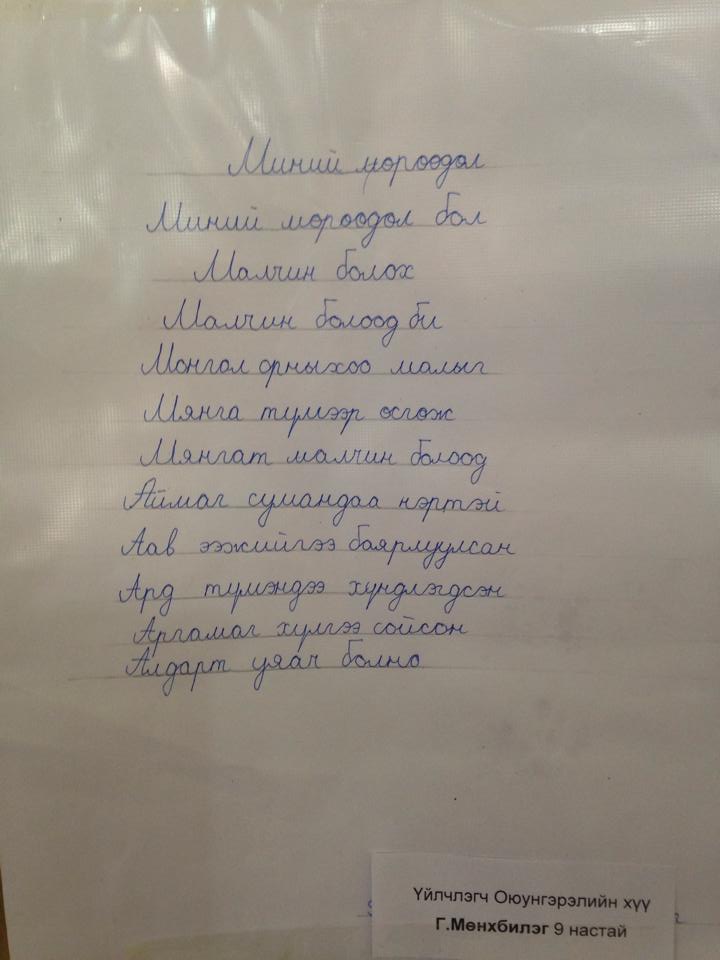 Миний мөрөөдөл
Миний мөрөөдөл бол
Малчин болох
Малчин болоод би
Монгол орныхоо малыг
Мянга түмээр өсгөж
Мянгат малчин болоод
Аймаг сумандаа нэртэй
Аав ээжийгээ баярлуулсан
Ард түмэндээ хүндлэгдсэн
Аргамаг хүлгээ сойсон
Алдарт уяач болно
Үйлчлэгч Оюунгэрэлийн хүү
Г.Мөнхбилэг 9 настай